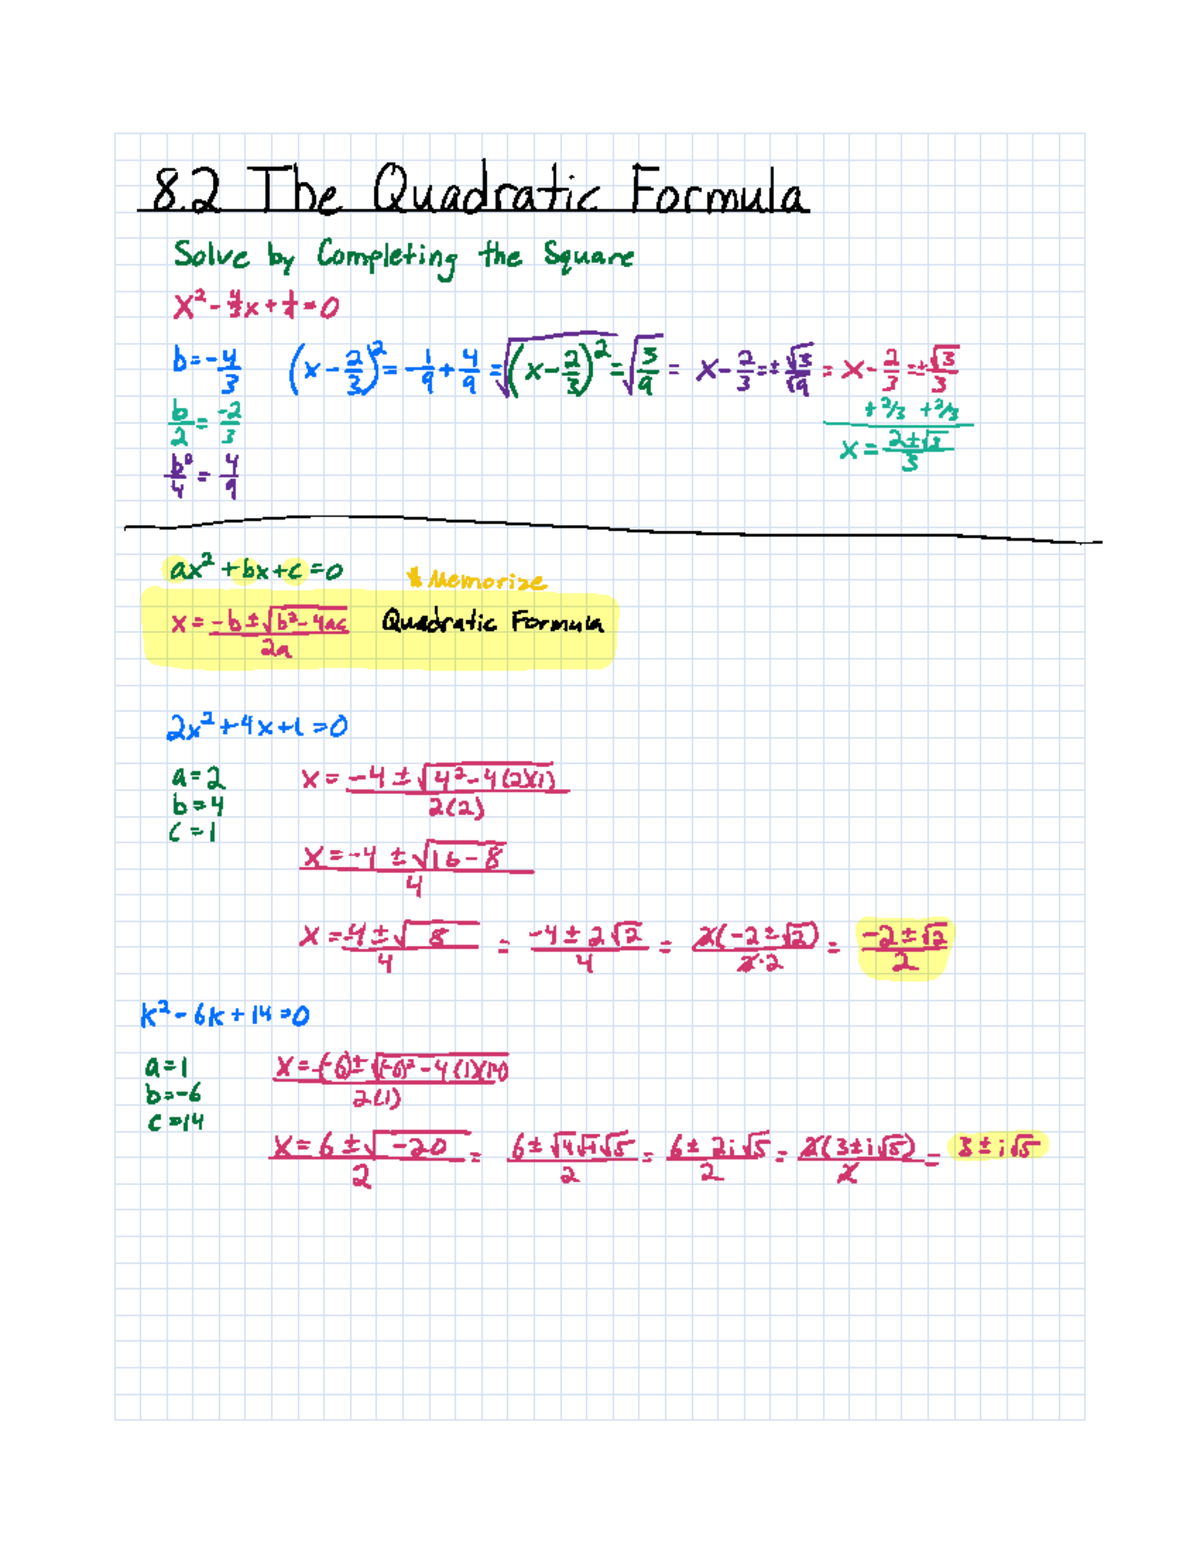 8.2 The Quadratic Formula
Solve by Completing the Square
x² - 4/3x + 1/9 = 0
b = -4/3 (x - 2/3)² = -1/9 + 4/9 = √(x - 2/3)² = √3/9 = x - 2/3 = ± √3/√9 = x - 2/3 = ± √3/3
b/2 = -2/3 + 2/3 + 2/3
x = 2±√3/3
b²/4 = 4/9
ax² + bx + c = 0
* Memorize
x = -b ± √b² - 4ac / 2a Quadratic Formula
2x² + 4x + 1 = 0
a = 2 x = -4 ± √4² - 4(2)(1) / 2(2)
b = 4
c = 1
x = -4 ± √16 - 8 / 4
x = -4 ± √8 / 4 = -4 ± 2√2 / 4 = 2(-2 ± √2) / 2·2 = -2 ± √2 / 2
k² - 6k + 14 = 0
a = 1 x = -(-6) ± √(-6)² - 4(1)(14) / 2(1)
b = -6
c = 14
x = 6 ± √-20 / 2 = 6 ± √4√-1√5 / 2 = 6 ± 2i√5 / 2 = 2(3 ± i√5) / 2 = 3 ± i√5